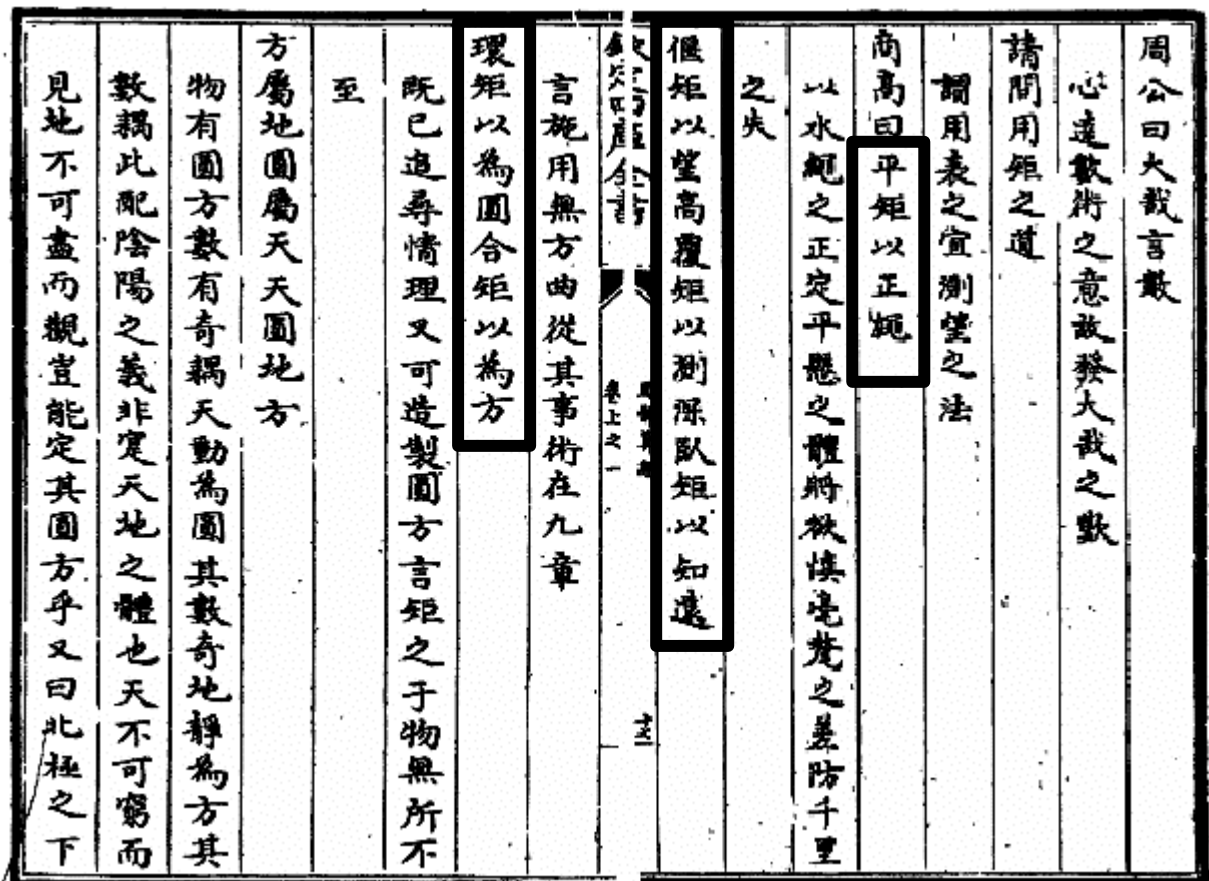 周公曰大哉言數
心達數術之意故發大哉之歎
請問用矩之道
謂用表之宜測望之法
商高曰平矩以正繩
以水繩之正定平懸之體將欲慎毫釐之差防千里
之失
偃矩以望高覆矩以測深臥矩以知遠
欽定四庫全書
卷上之一
言施用無方曲從其事術在九章
環矩以為圓合矩以為方
既已追尋情理又可造製圓方言矩之于物無所不
至
方屬地圓屬天天圓地方
物有圓方數有奇耦天動為圓其數奇地靜為方其
數耦此配陰陽之義非實天地之體也天不可窮而
見地不可盡而觀豈能定其圓方乎又曰北極之下